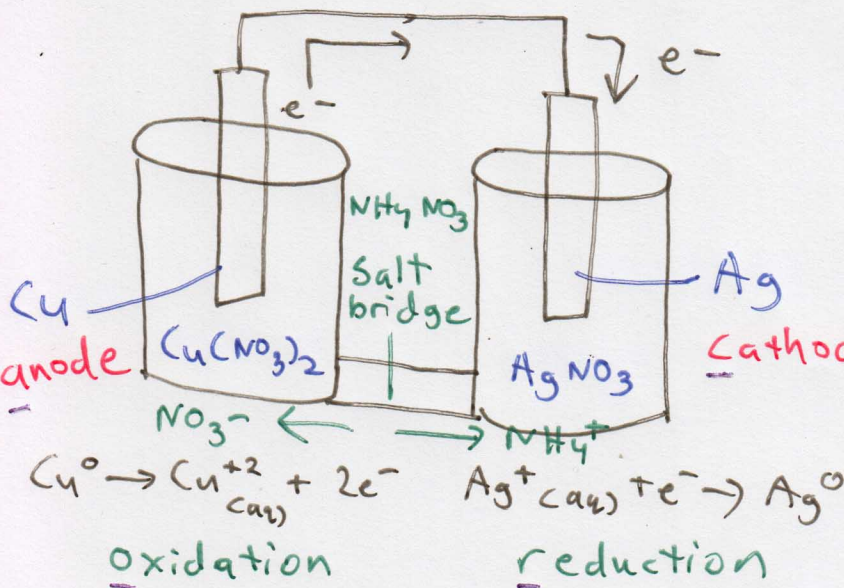 e-
e-
NH4 NO3
Salt
bridge
Cu
anode
Cu(NO3)2
Ag
Cathod
AgNO3
NO3-
NH4+
Cu⁰ → Cu⁺²(aq) + 2e⁻
Ag⁺(aq) + e⁻ → Ag⁰
oxidation
reduction